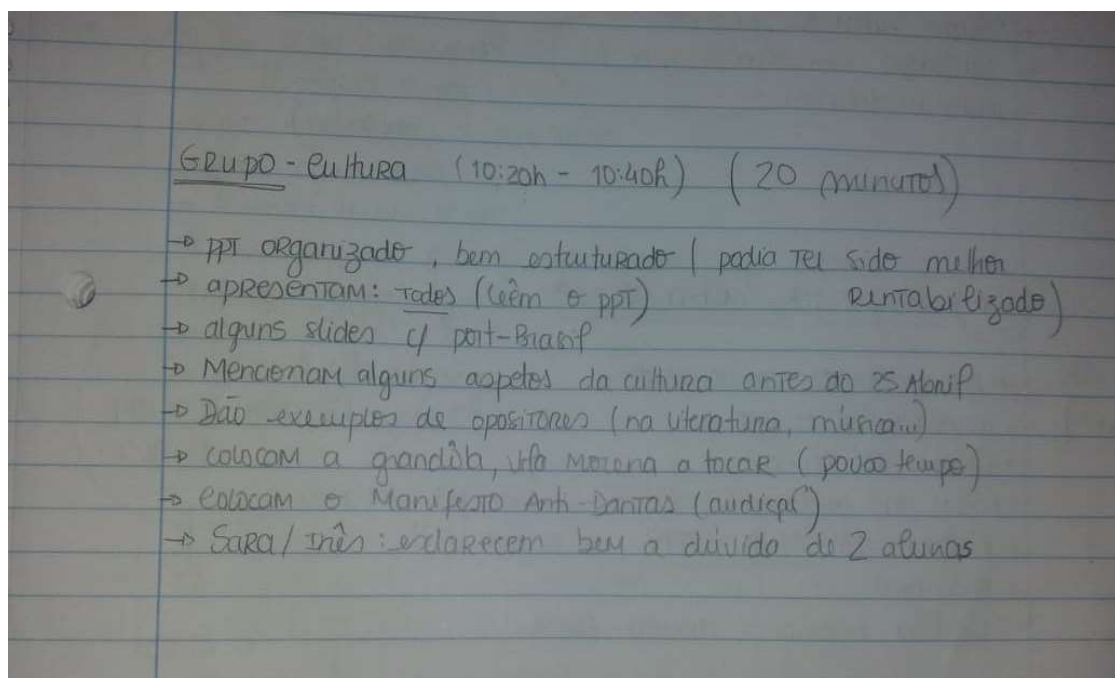 Grupo - Cultura (10:20h - 10:40h) (20 minutos)
→ PPT organizado, bem estruturado (podia ter sido melhor
rentabilizado)
→ apresentam: todos (lêem o ppt)
→ alguns slides c/ port-Brasil
→ Mencionam alguns aspetos da cultura antes do 25 Abril
→ Dão exemplos de opositores (na literatura, música...)
→ colocam a grandôla, vila morena a tocar (pouco tempo)
→ Colocam o Manifesto Anti-Dantas (audição)
→ Sara/Inês: esclarecem bem a dúvida de 2 alunas